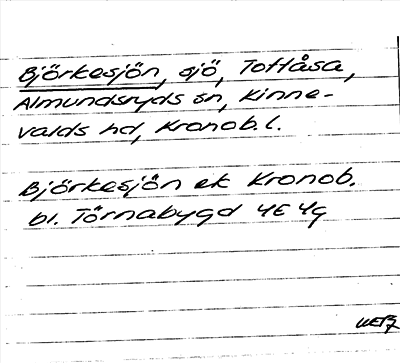 Björkesjön, sjö, Tottåsa,
Almundsryds sn, Kinne-
valds hd, Kronob. l.
Björkesjön ek Kronob.
bl. Törnabygd 4E 4g